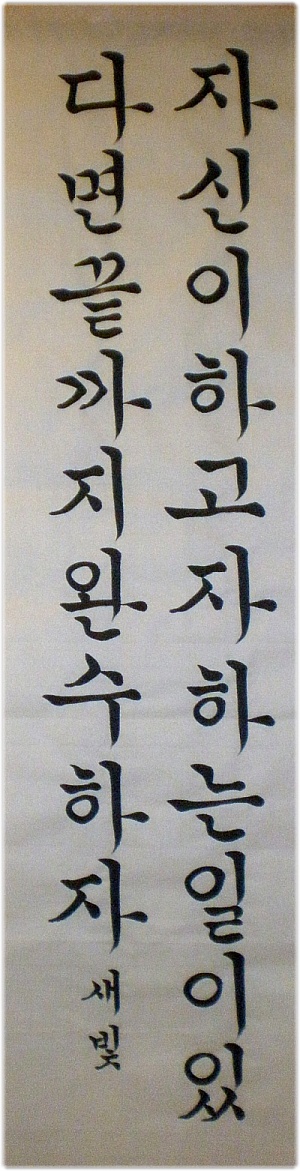 자신이하고자하는일이있
다면끝까지완수하자 새빛